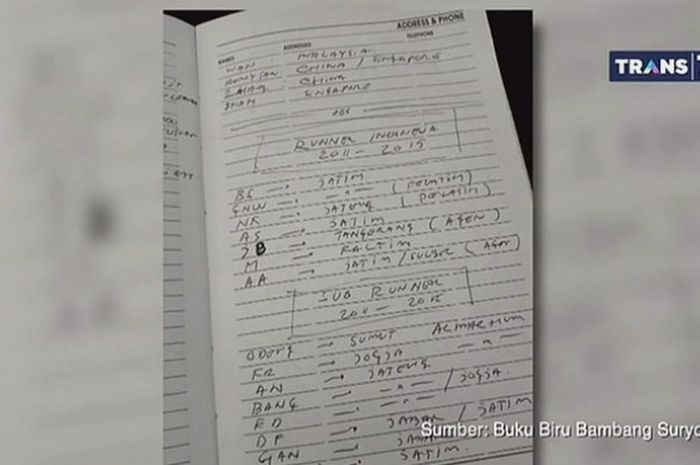 ADDRESS & PHONE
NAMES ADDRESSES TELEPHONE
WAN MALAYSIA
CHINA / SINGAPORE
CHINA
SHAM SINGAPORE
TRANS
RUNNER INDONESIA
2011 - 2015
BS → JATIM
GNW → -"-
NK → JATENG (PELATIH)
AS → JATIM (PELATIH)
JB → TANGERANG (AGEN)
M → KALTIM
AA → JATIM / SULSEL (AGEN)
SUB RUNNER
2011 - 2015
→ SUMUT ALMARHUM
FR → JOGJA -"-
AN → JATENG
BANG → -"-
ED → -"- / JOGJA.
DF → JABAR / JATIM
GAN → JABAR
JATIM.
Sumber: Buku Biru Bambang Suryo